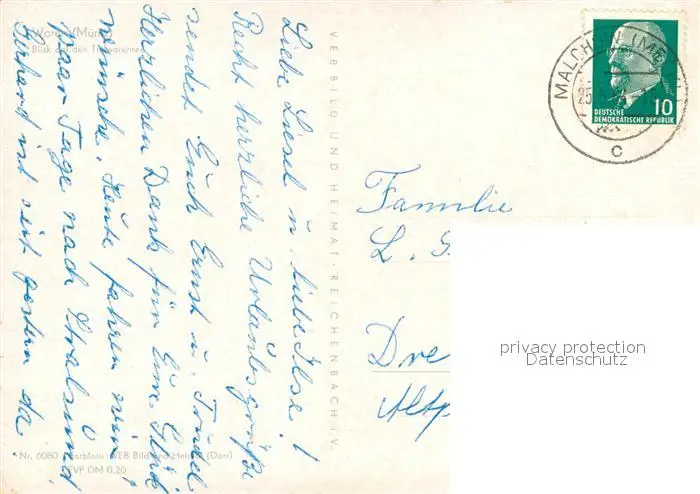 Waren (Müritz)
Blick auf den Tiefwarensee
Liebe Liesel u. liebe Ilse!
Recht herzliche Urlaubsgrüße
sendet Euch Ernst u. Trudel
Herzlichen Dank für Eure Glück
wünsche. Heute fahren wir
paar Tage nach Stralsund
Gerhard ist seit gestern da.
Nr. 6080 Farbfoto: VEB Bild und Heimat (Darr)
EVP DM 0,20
VEB BILD UND HEIMAT · REICHENBACH I. V.
MALCHOW (MECKL)
25
c
10
DEUTSCHE
DEMOKRATISCHE REPUBLIK
Familie
L. G
Dre
Altp
privacy protection
Datenschutz